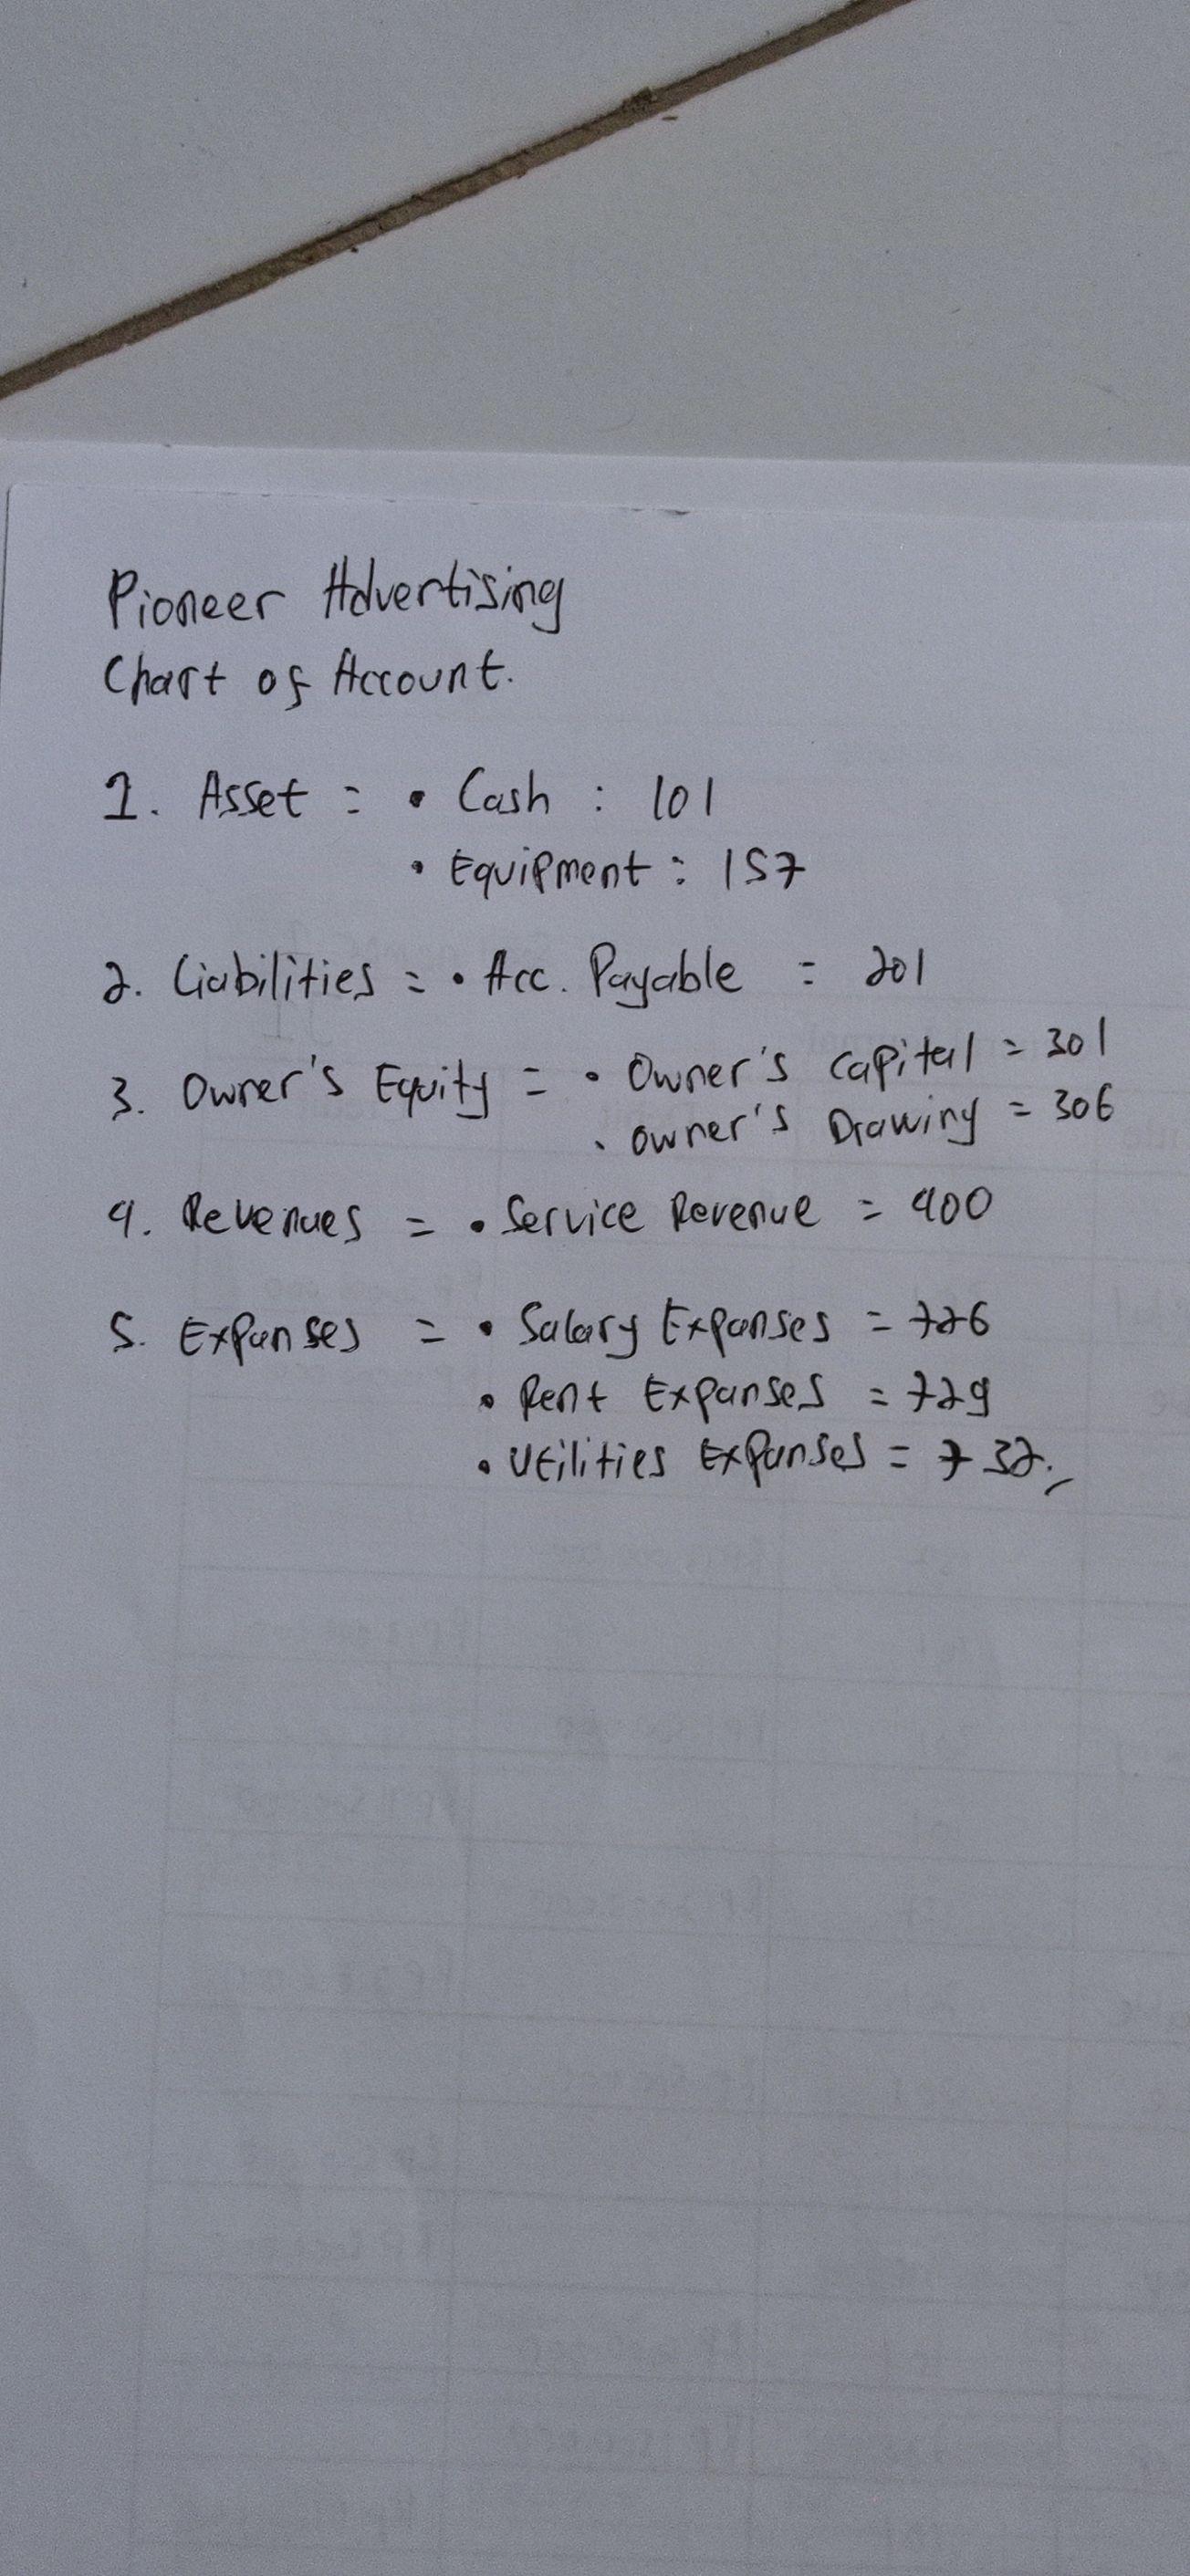 Pioneer Advertising
Chart of Account.
1. Asset = • Cash : 101
• Equipment : 157
2. Liabilities = • Acc. Payable = 201
3. Owner's Equity = • Owner's capital = 301
• Owner's Drawing = 306
4. Revenues = • Service Revenue = 400
5. Expanses = • Salary Expanses = 726
• Rent Expanses = 729
• Utilities Expanses = 732.